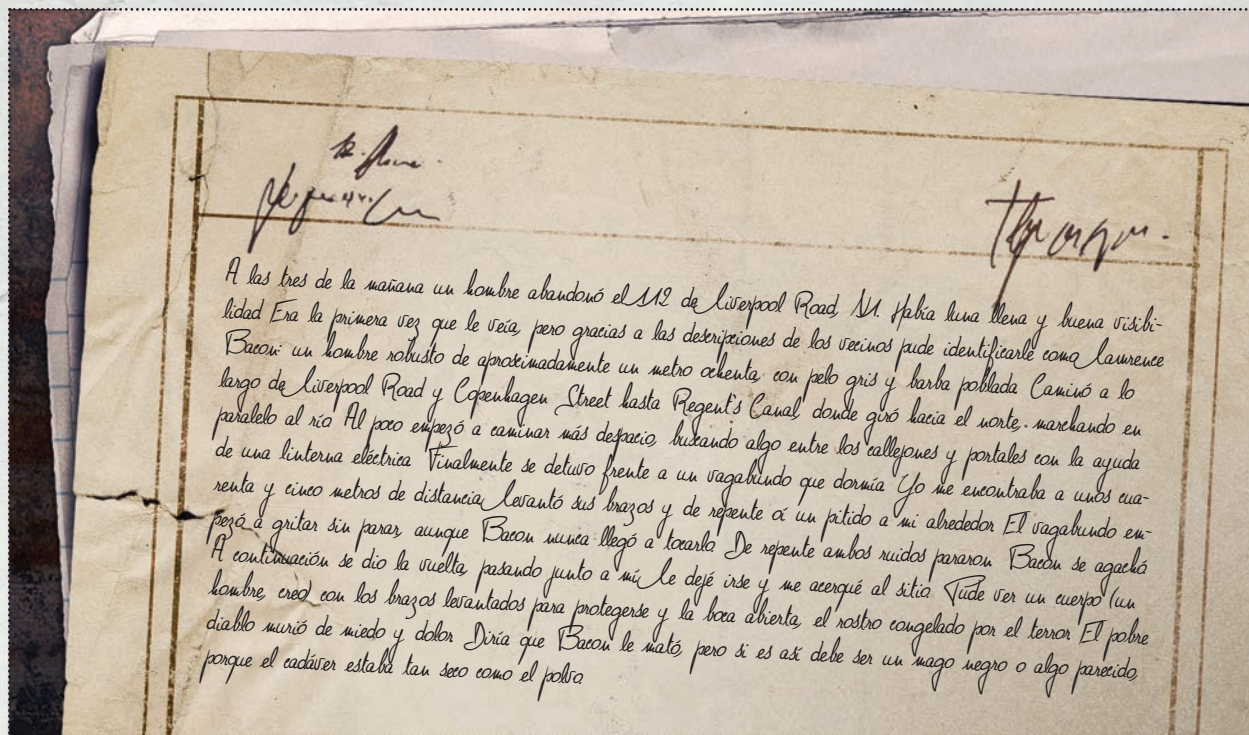 A las tres de la mañana un hombre abandonó el 112 de Liverpool Road, N1. Había luna llena y buena visibi-
lidad Era la primera vez que le veía, pero gracias a las descripciones de los vecinos pude identificarle como Lawrence
Bacon: un hombre robusto de aproximadamente un metro ochenta, con pelo gris y barba poblada Caminó a lo
largo de Liverpool Road y Copenhagen Street hasta Regent's Canal, donde giró hacia el norte, marchando en
paralelo al río Al poco empezó a caminar más despacio, buscando algo entre los callejones y portales con la ayuda
de una linterna eléctrica Finalmente se detuvo frente a un vagabundo que dormía Yo me encontraba a unos cua-
renta y cinco metros de distancia, levantó sus brazos y de repente oí un pitido a mi alrededor El vagabundo em-
pezó a gritar sin parar, aunque Bacon nunca llegó a tocarlo De repente ambos ruidos pararon Bacon se agachó
A continuación se dio la vuelta, pasando junto a mí Le dejé irse y me acerqué al sitio Pude ver un cuerpo (un
hombre, creo) con los brazos levantados para protegerse y la boca abierta, el rostro congelado por el terror El pobre
diablo murió de miedo y dolor Diría que Bacon le mató, pero si es así debe ser un mago negro o algo parecido,
porque el cadáver estaba tan seco como el polvo